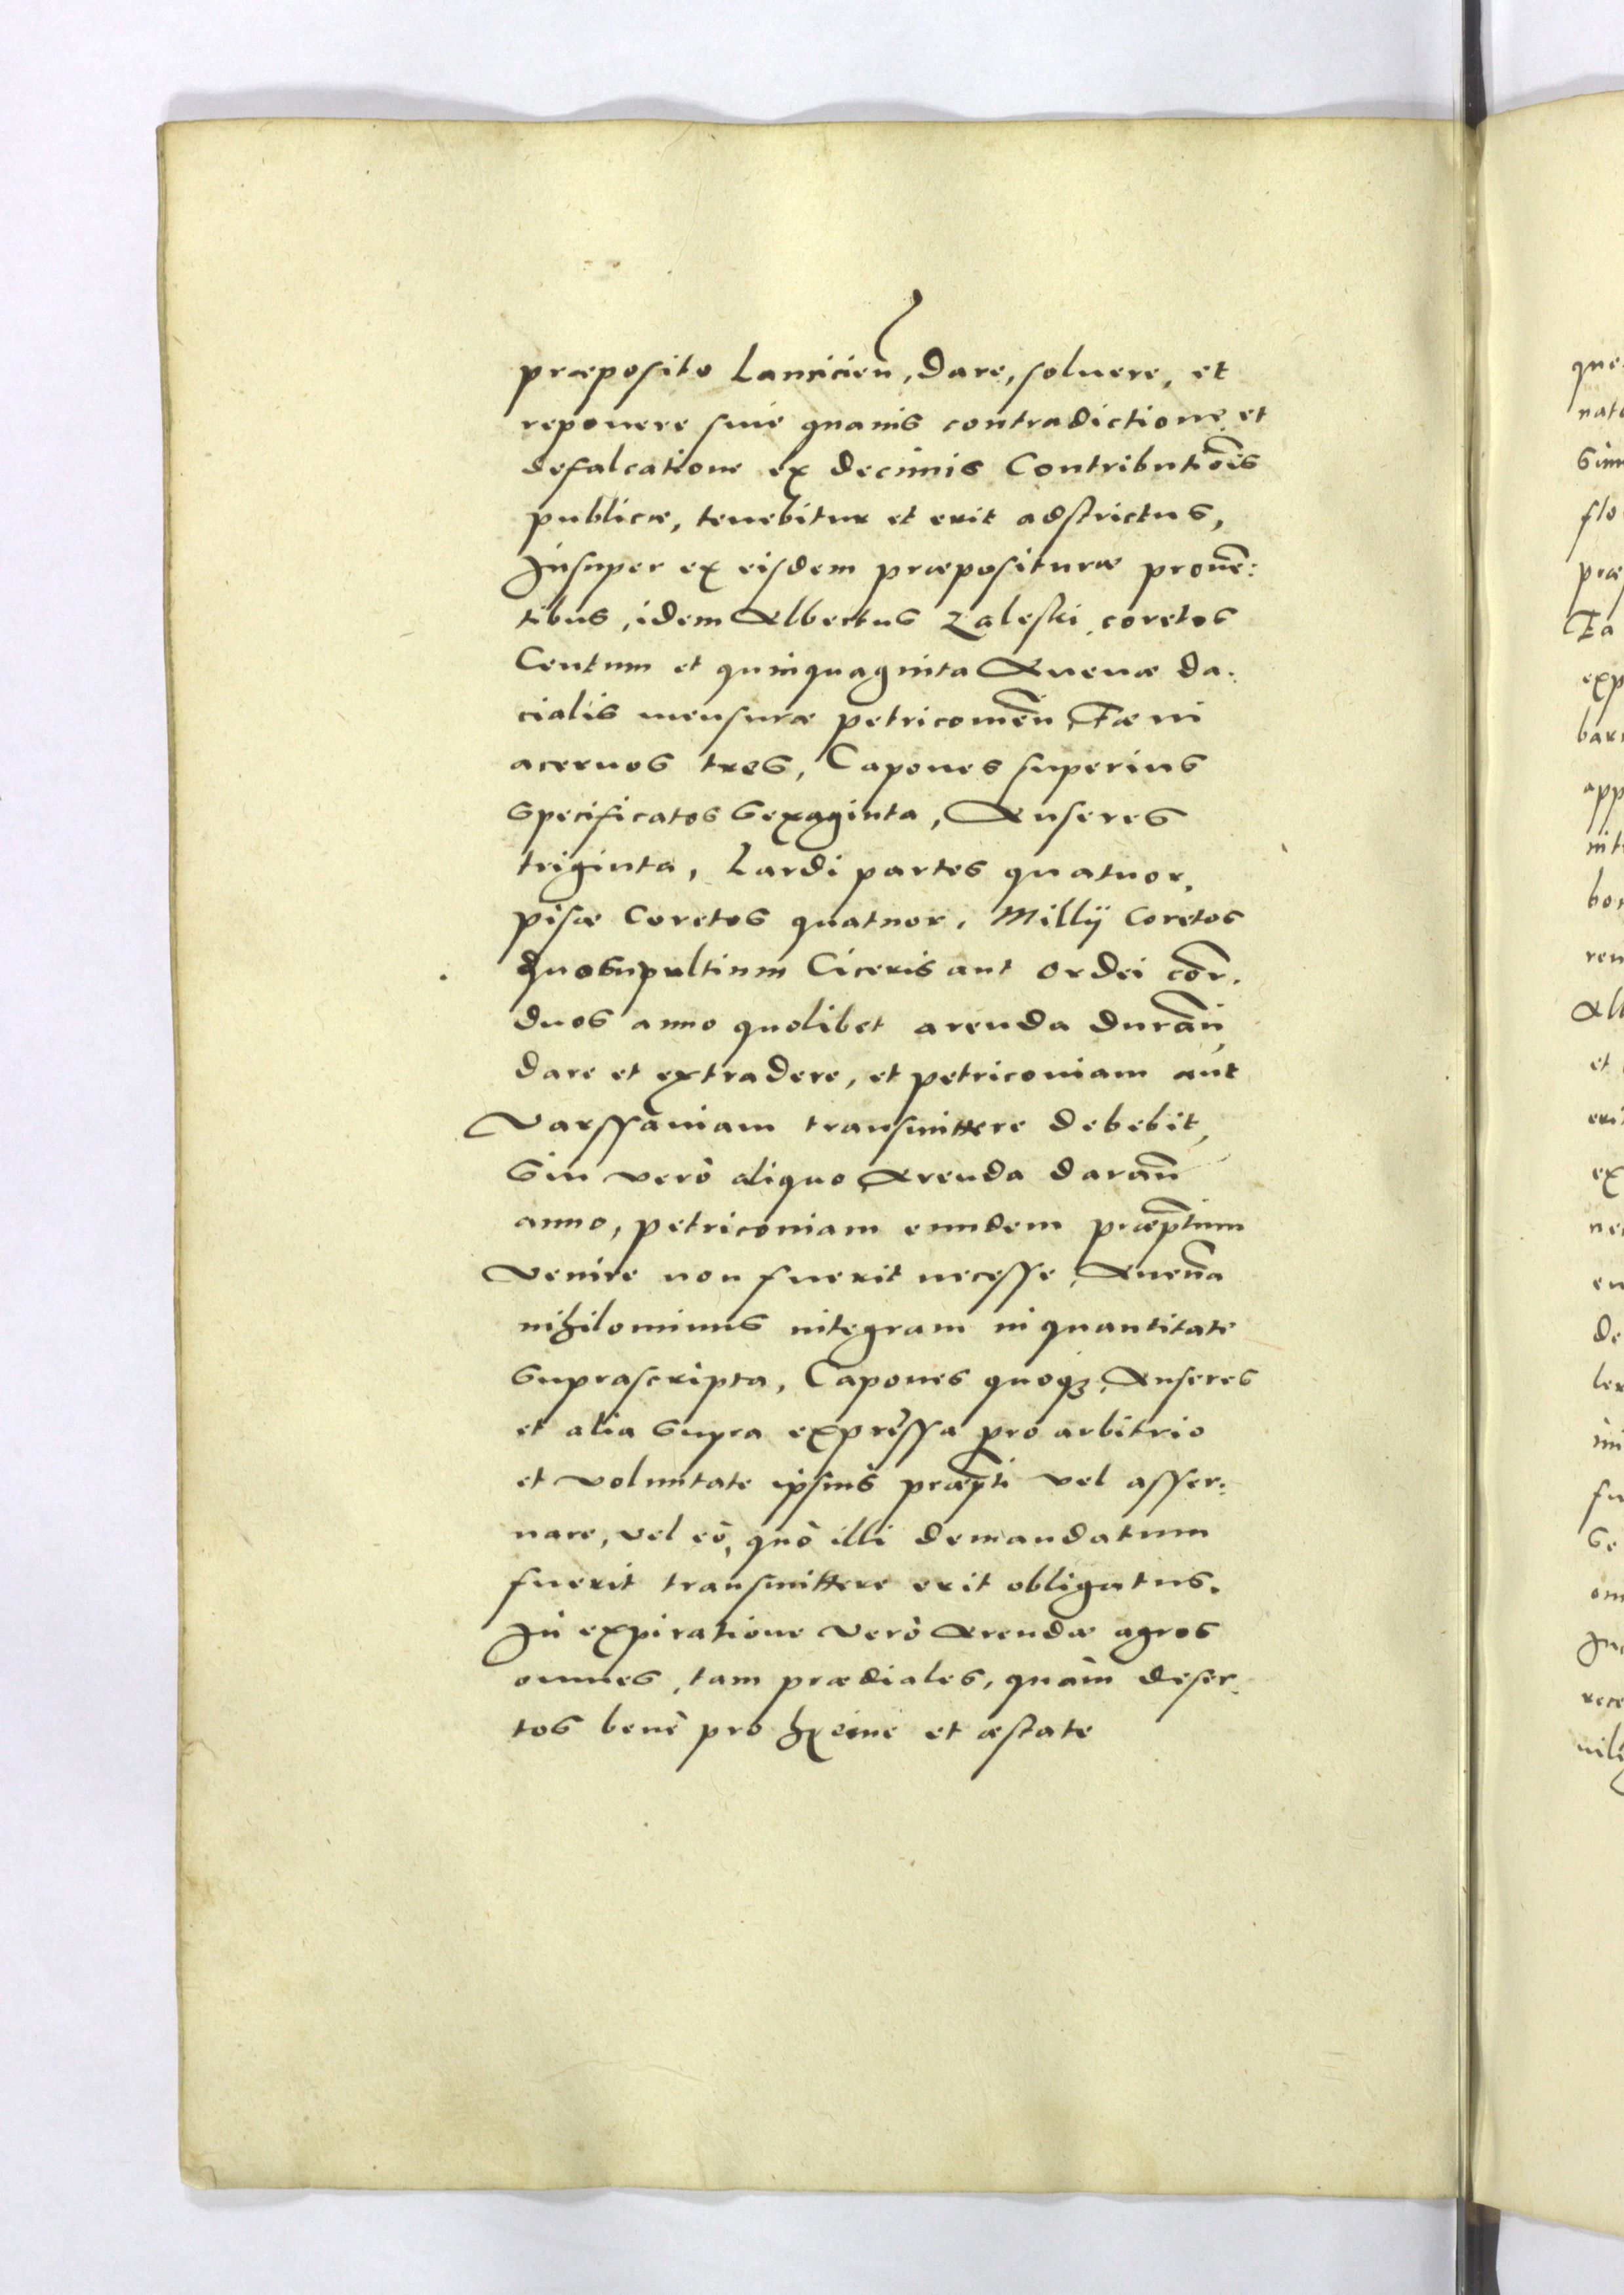 præposito Lancicień, dare, soluere, et
reponere sine quauis contradictione et
defalcatione ex decimis Contributiōis
publicæ, tenebitur et erit adstrictus,
Insuper ex eisdem præposituræ prouē:
tibus, idem Albertus Zaleski coretos
Centum et quinquaginta Auenæ da:
cialis mensuræ petricouień, Fæni
aceruos tres, Capones superius
specificatos sexaginta, Anseres
triginta, Lardi partes quatuor,
pisæ Coretos quatuor, Millij Coretos
duos pultium Ciceris aut ordei cor̄.
duos anno quolibet arenda durań,
dare et extradere, et petricouiam aut
Varssauiam transmittere debebit,
Sin verò aliquo Arenda daran̄
anno, petricouiam eundem præp̄tium
venire non fuerit necesse, Auenā
nihilominus integram in quantitate
suprascripta, Capones quoq₃, Anseres
et alia supra expressa pro arbitrio
et voluntate ipsius præp̄ti vel asser:
uare, vel eò, quò illi demandatum
fuerit transmittere erit obligatus.
In expiratione verò Arendæ agros
omnes, tam prædiales, quàm deser:
tos benè pro hyeme et æstate
que
nat
flo
præ
Fa
exp
bar
app
int
bo
ren
Alb
et
eri
ex
ne
eu
de
ler
fu
se
om
rece